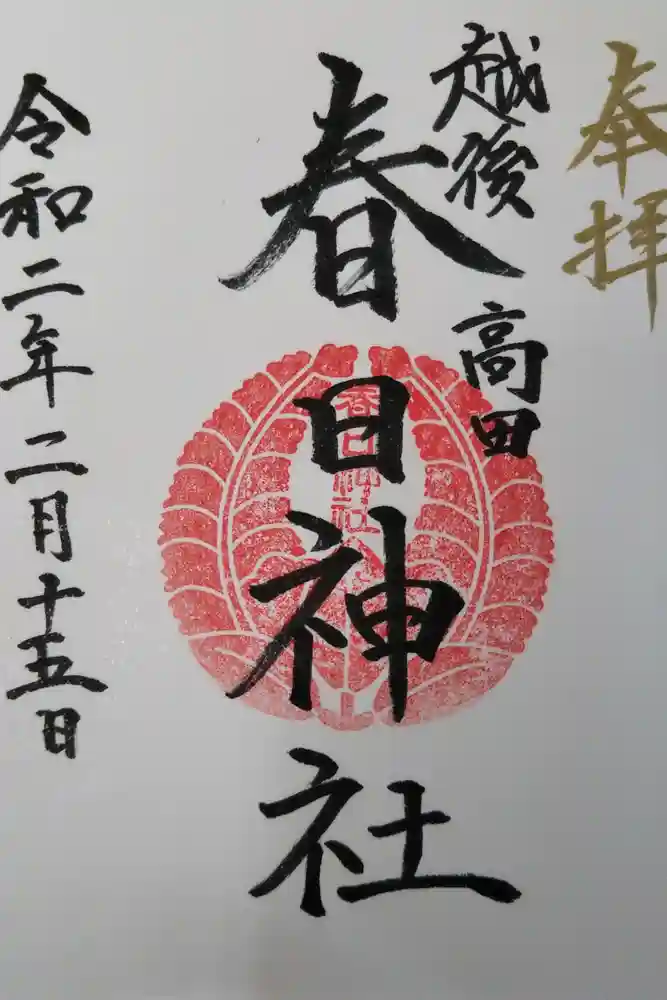 奉拝
越後
高田
春日神社
春日神社
令和二年二月十五日